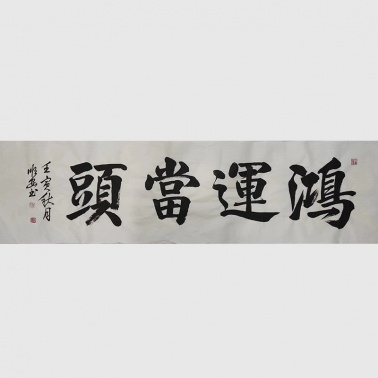 鴻運當頭
壬寅秋月